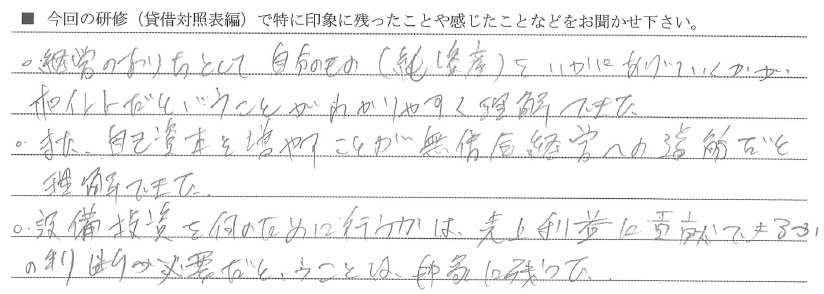 ■ 今回の研修（貸借対照表編）で特に印象に残ったことや感じたことなどをお聞かせ下さい。
○経営のありかたとして 自分のもの（純資産）をいかにあげていくかが
ポイントだということがわかりやすく理解できた
○また、自己資本を増やすことが無借金経営への道筋だと
理解できた。
○設備投資を何のために行うかは、売上利益に貢献できるか
の判断が必要だということは、印象に残った。